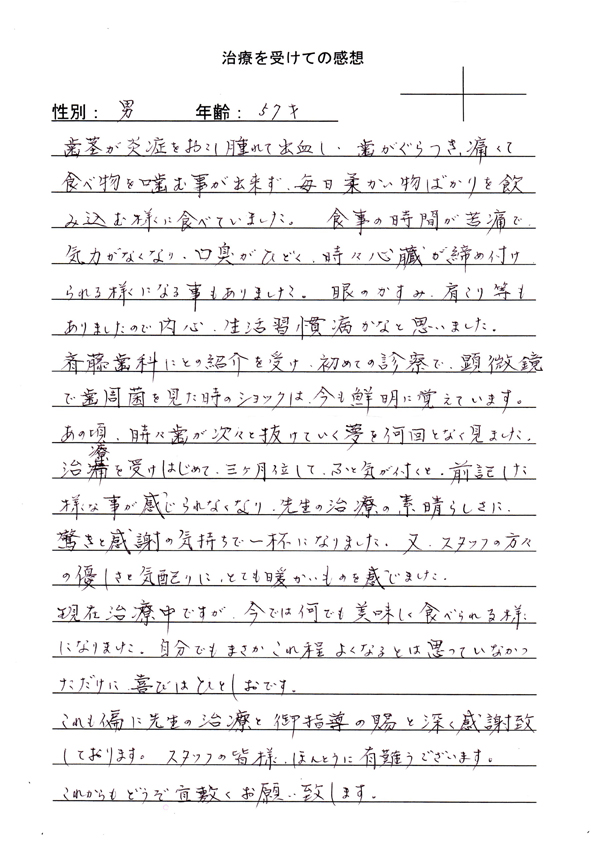 治療を受けての感想
性別： 男 年齢： 57才
歯茎が炎症をおこし腫れて出血し、歯がぐらつき、痛くて
食べ物を噛む事が出来ず、毎日柔かい物ばかりを飲
み込む様に食べていました。 食事の時間が苦痛で、
気力がなくなり、口臭がひどく、時々心臓が締め付け
られる様になる事もありました。 眼のかすみ、肩こり等も
ありましたので内心、生活習慣病かなと思いました。
斉藤歯科にとの紹介を受け、初めての診察で、顕微鏡
で歯周菌を見た時のショックは、今も鮮明に覚えています。
あの頃、時々歯が次々と抜けていく夢を何回となく見ました。
治療を受けはじめて、三ヶ月位して、ふと気が付くと、前記した
様な事が感じられなくなり、先生の治療の素晴らしさに、
驚きと感謝の気持ちで一杯になりました。又、スタッフの方々
の優しさと気配りに、とても暖かいものを感じました。
現在治療中ですが、今では何でも美味しく食べられる様に
になりました。自分でもまさかこれ程よくなるとは思っていなかっ
ただけに喜びはひとしおです。
これも偏に先生の治療と御指導の賜と深く感謝致
しております。 スタッフの皆様、ほんとうに有難うございます。
これからもどうぞ宜敷くお願い致します。